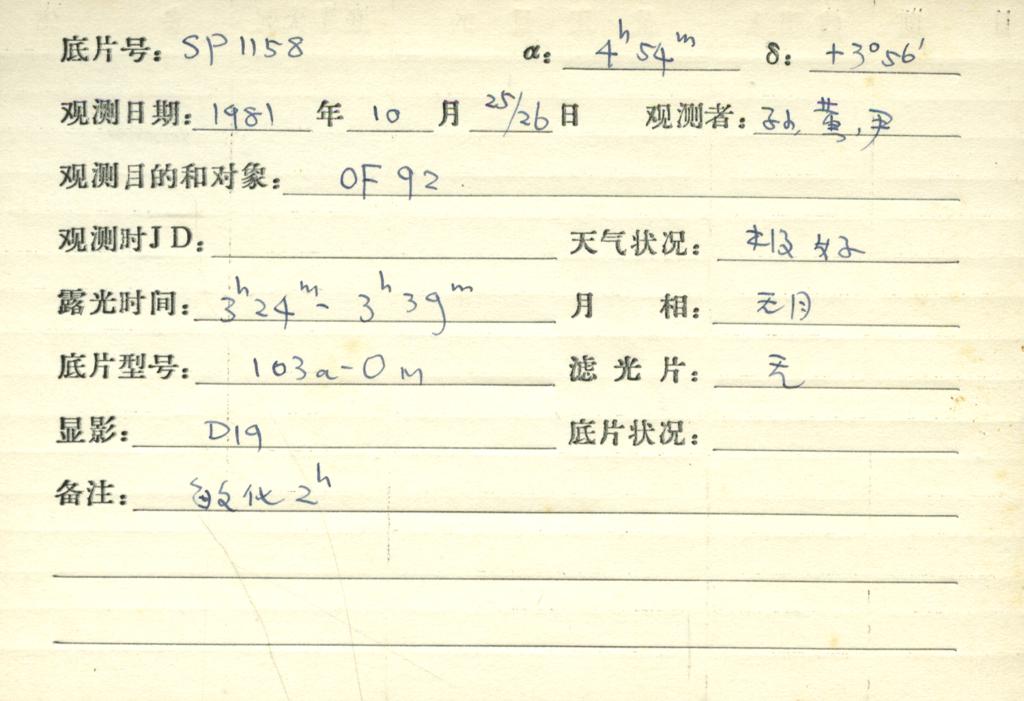 底片号: SP1158 α: 4h 54m δ: +3°56′
观测日期: 1981 年 10 月 25/26 日 观测者: 孙, 黄, 尹
观测目的和对象: OF 92
观测时JD: 天气状况: 极好
露光时间: 3h 24m - 3h 39m 月相: 无月
底片型号: 103a-O m 滤光片: 无
显影: D19 底片状况:
备注: 敏化 2h